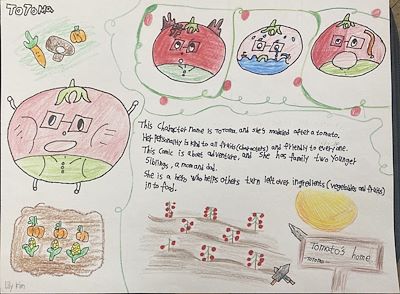 ToToMa
This character name is ToToma, and she's modeled after a tomato.
Her personality is kind to all fruits (characters) and friendly to everyone.
This comic is about adventure, and she has family two younger
siblings, a mom and dad.
She is a hero who helps others turn left over ingredients (vegetables and fruits)
in to food.
Tomato's home
-TOTOMA-
Lily Kim